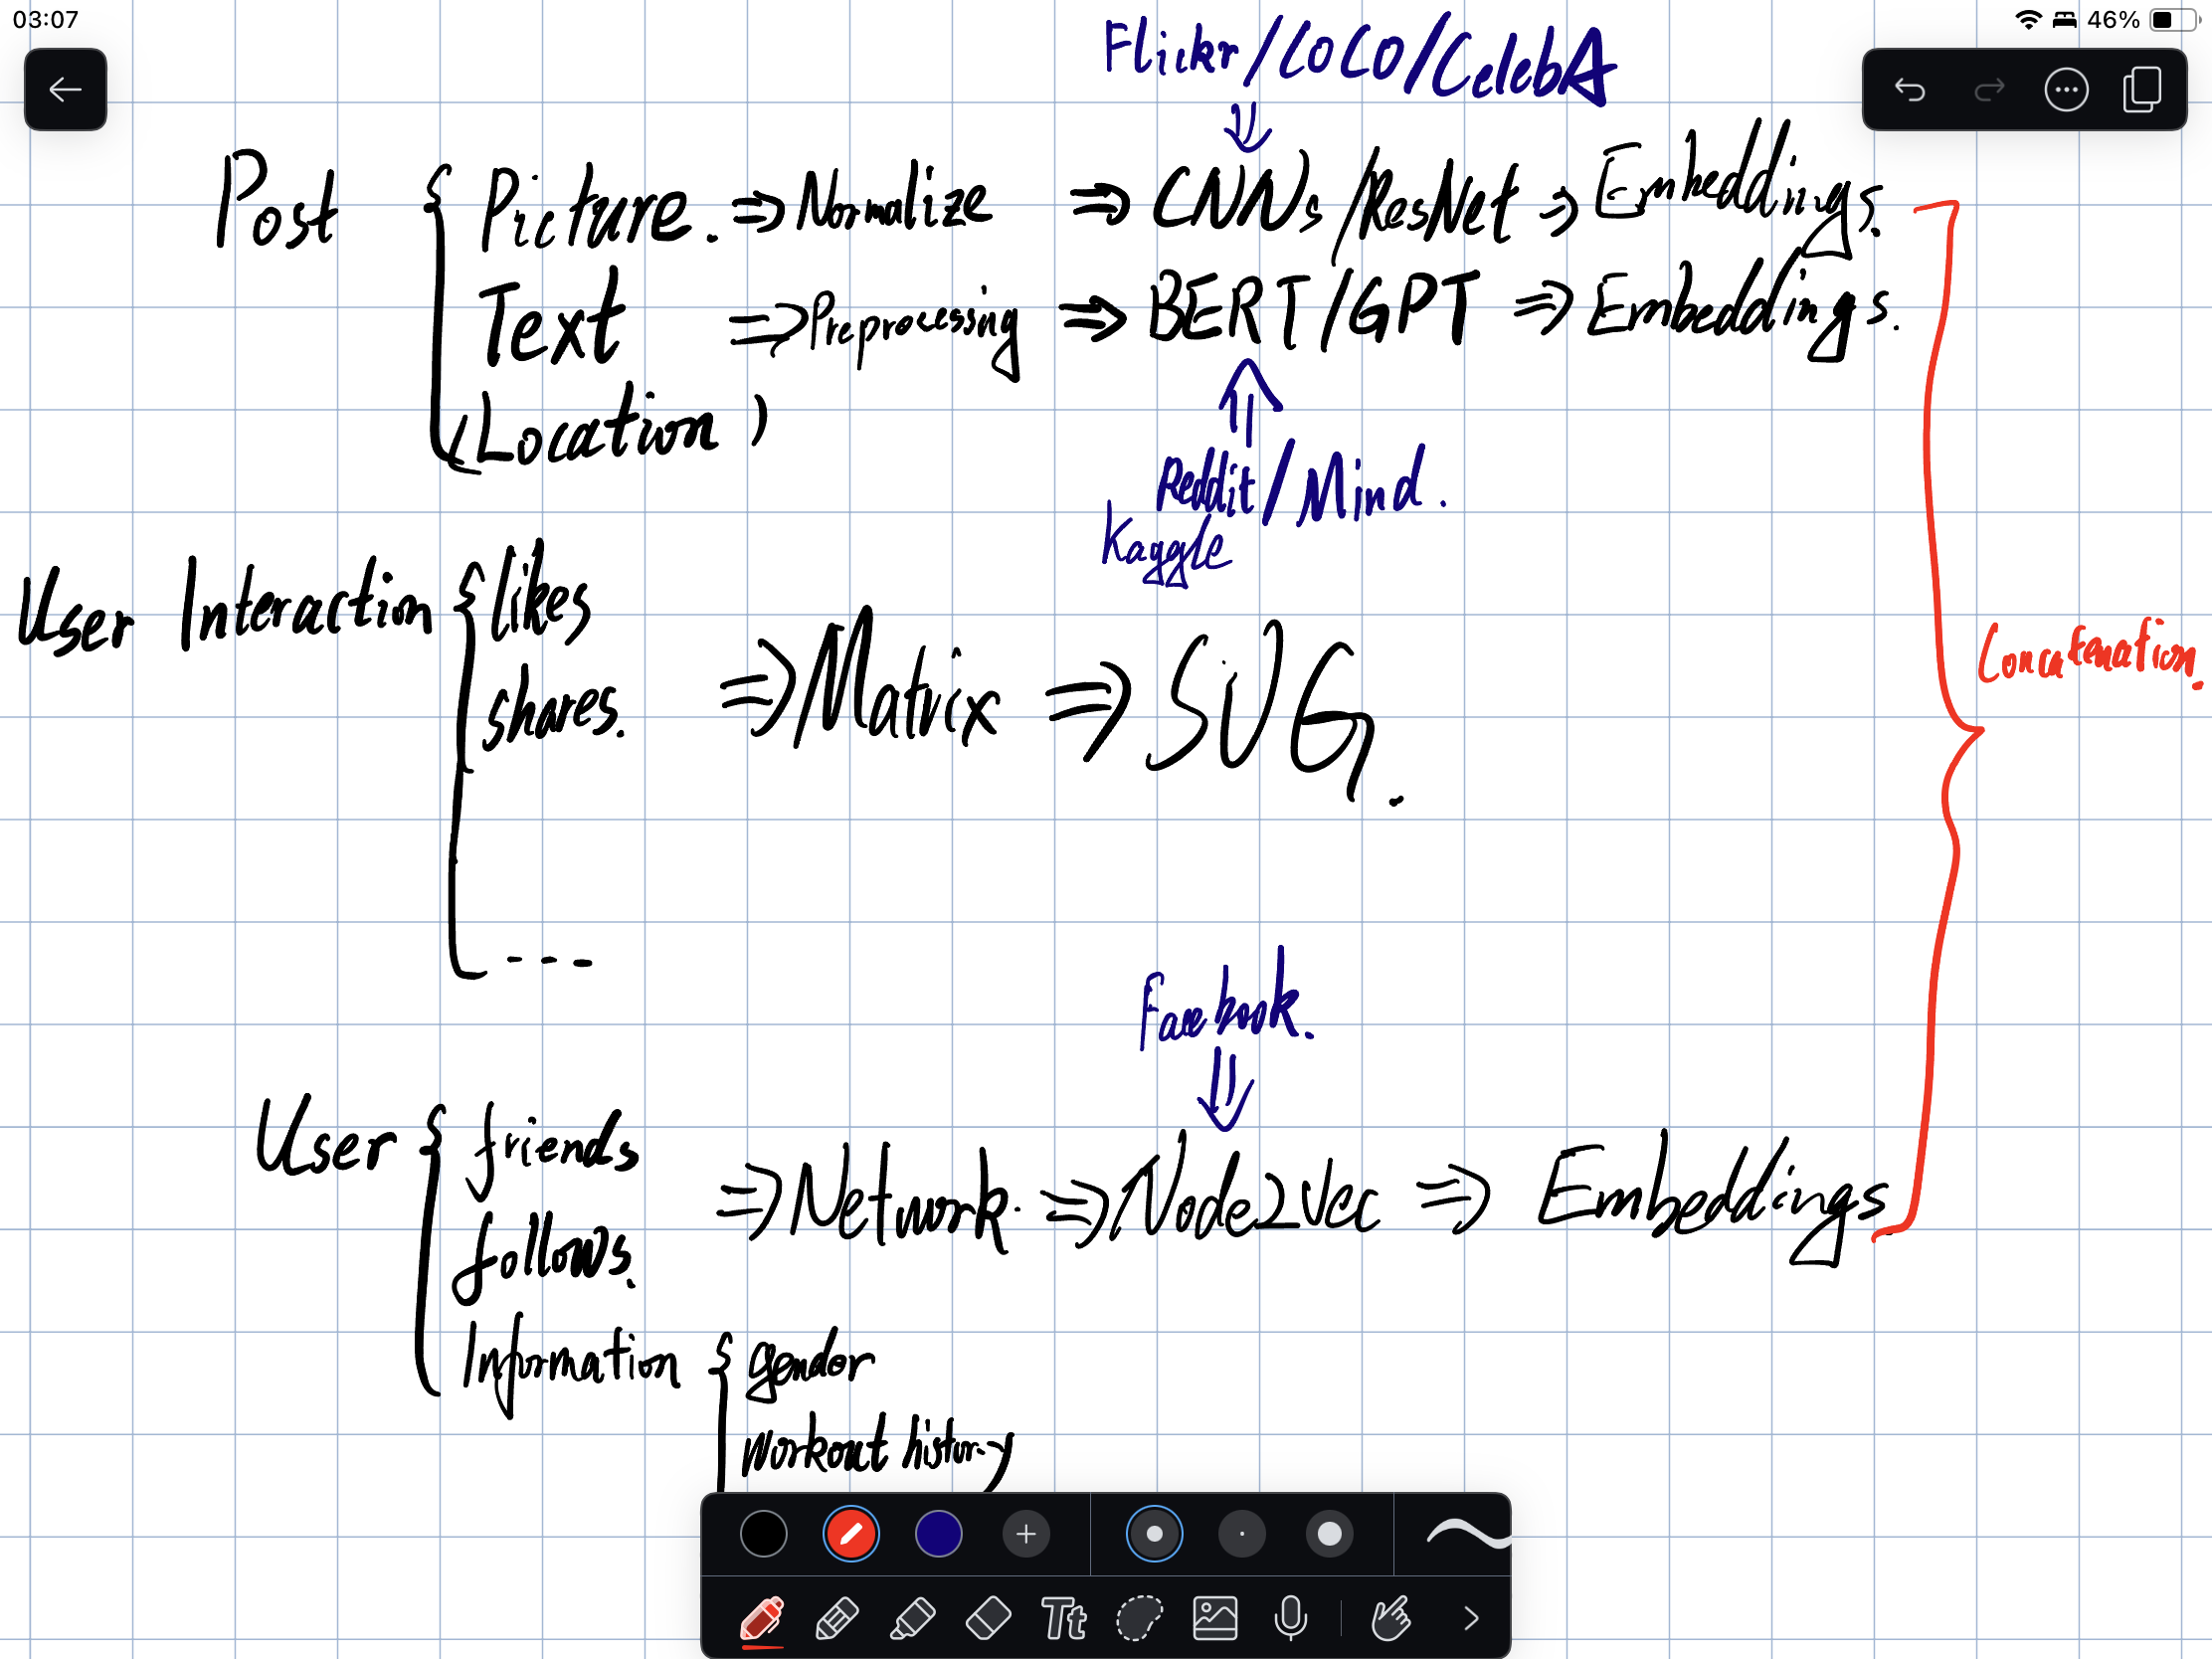 03:07
46%
Flickr/COCO/CelebA
Post { Picture. ⇒ Normalize ⇒ CNNs/ResNet ⇒ Embeddings.
Text ⇒ Preprocessing ⇒ BERT/GPT ⇒ Embeddings.
(Location)
Reddit/Mind.
Kaggle
User Interaction { likes
shares. ⇒ Matrix ⇒ SVG.
Concatenation.
---
Facebook.
User { friends
⇒ Network. ⇒ Node2Vec ⇒ Embeddings
follows.
Information { gender
workout history
Tt